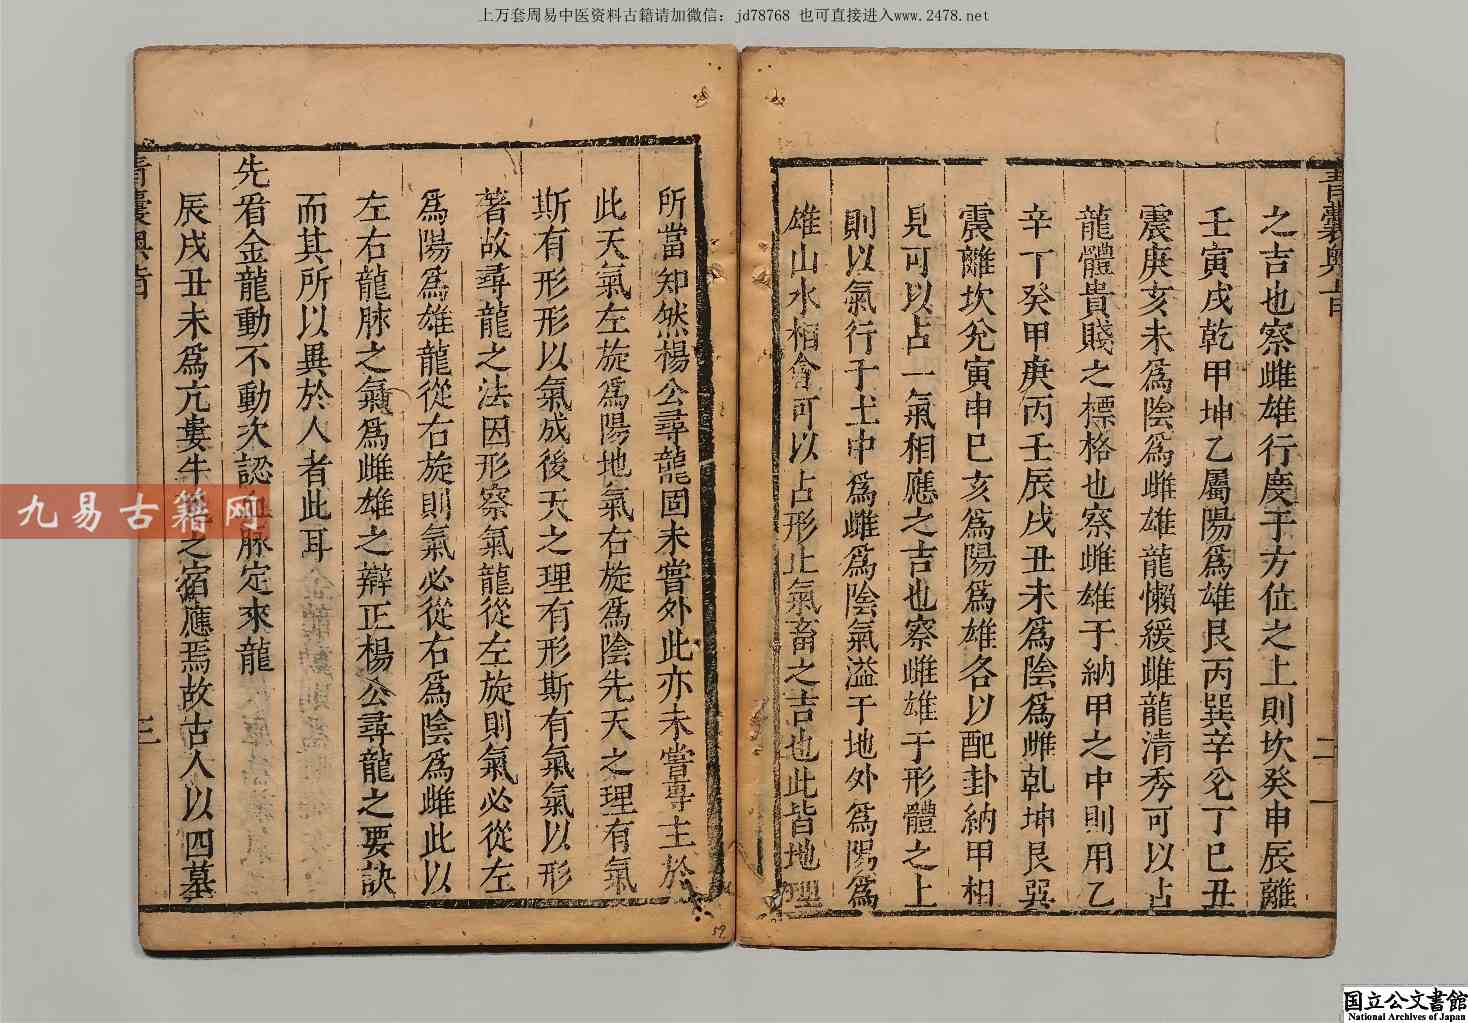 上万套周易中医资料古籍请加微信：jd78768 也可直接进入www.2478.net
青囊奧旨
二
之吉也察雌雄行慶于方位之上則坎癸申辰離
壬寅戌乾甲坤乙屬陽為雄艮丙巽辛兌丁巳丑
震庚亥未為陰為雌雄龍懶緩雌龍清秀可以占
龍體貴賤之標格也察雌雄于納甲之中則用乙
辛丁癸甲庚丙壬辰戌丑未為陰為雌乾坤艮巽
震離坎兌寅申巳亥為陽為雄各以配卦納甲相
見可以占一氣相應之吉也察雌雄于形體之上
則以氣行于土中為雌為陰氣溢于地外為陽為
雄山水相會可以占形止氣畜之吉也此皆地理
所當知然楊公尋龍固未嘗外此亦未嘗專主於
此天氣左旋為陽地氣右旋為陰先天之理有氣
斯有形形以氣成後天之理有形斯有氣氣以形
著故尋龍之法因形察氣龍從左旋則氣必從左
為陽為雄龍從右旋則氣必從右為陰為雌此以
左右龍脉之氣為雌雄之辯正楊公尋龍之要訣
而其所以異於人者此耳
先看金龍動不動次認血脉定來龍
辰戌丑未為亢婁牛之宿應焉故古人以四墓
青囊奧旨
三
九易古籍网
59
国立公文書館
National Archives of Japan